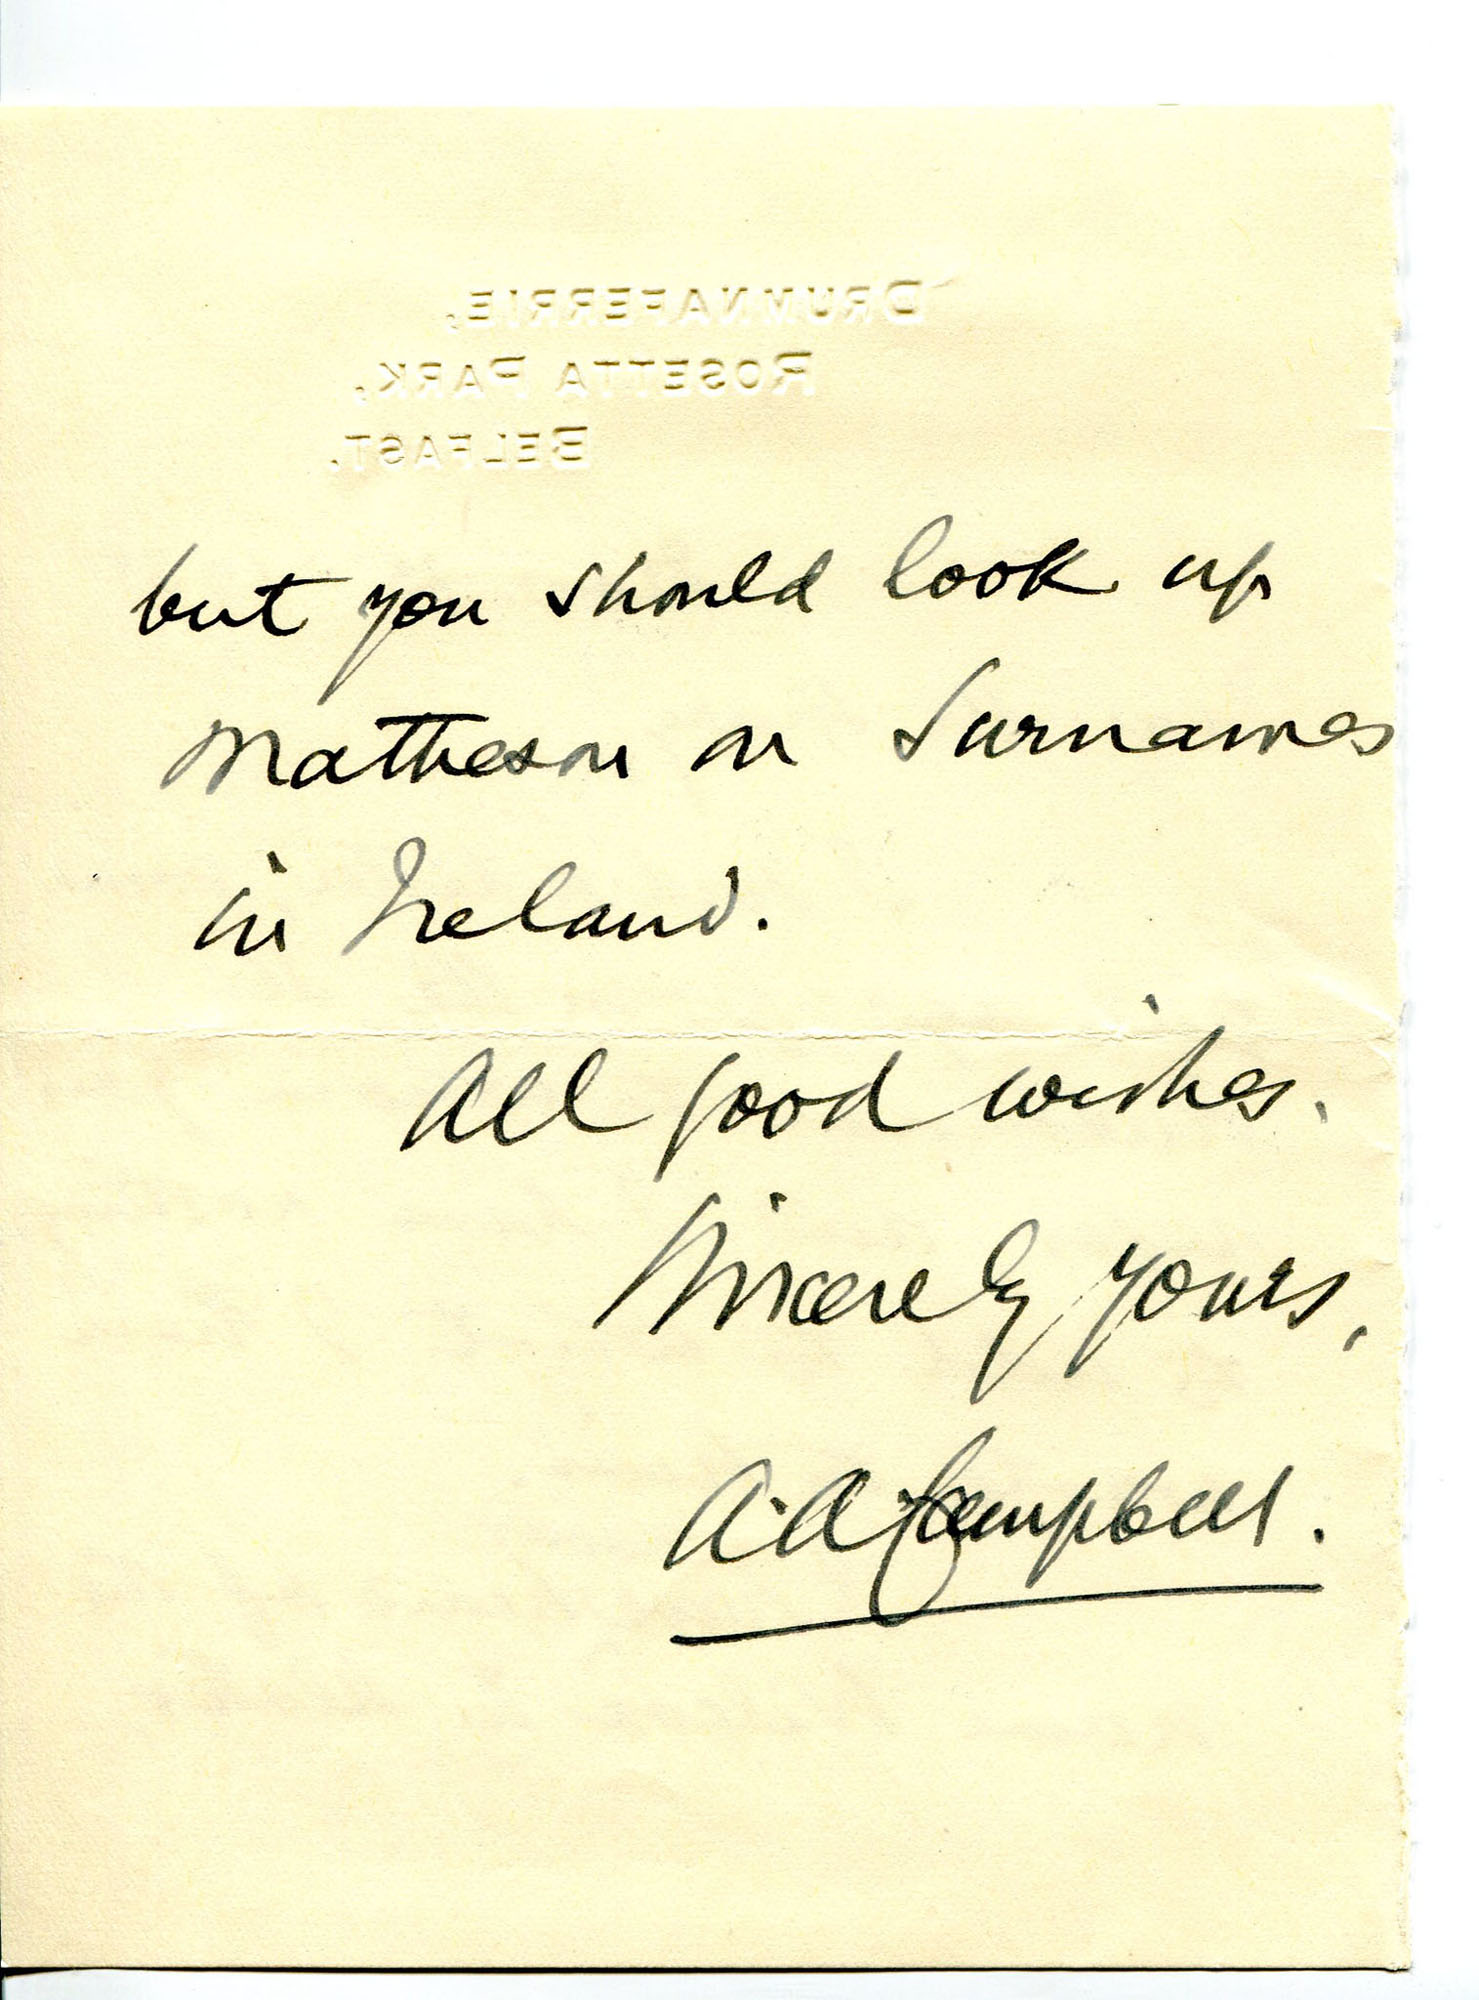 DRUMNAFERRIE,
ROSETTA PARK,
BELFAST.
but you should look up
Matheson on Surnames
in Ireland.
All good wishes.
Sincerely yours,
A. A. Campbell.